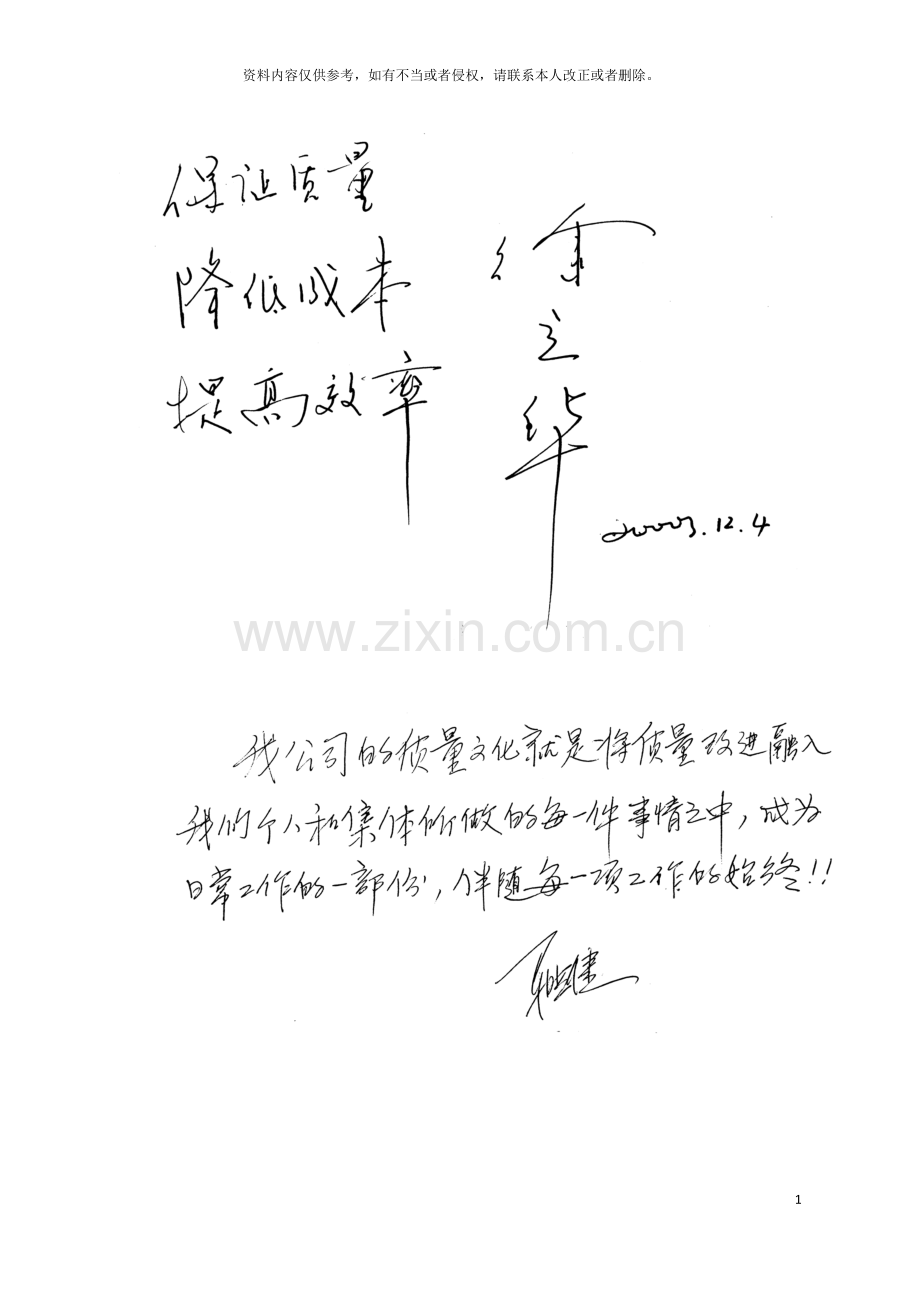 资料内容仅供参考，如有不当或者侵权，请联系本人改正或者删除。
保证质量
降低成本
提高效率
徐立华
2003.12.4
www.zixin.com.cn
我公司的质量文化就是将质量改进融入
我们个人和集体所做的每一件事情之中，成为
日常工作的一部份，伴随每一项工作的始终!!
1